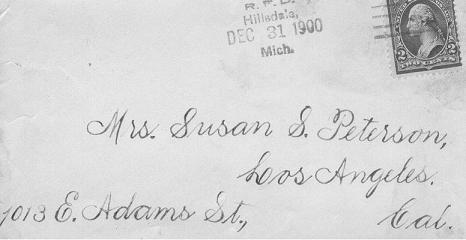 R. F. D.
Hillsdale,
DEC 31 1900
Mich.
2 TWO CENTS 2
Mrs. Susan S. Peterson,
Los Angeles.
1013 E. Adams St., Cal.